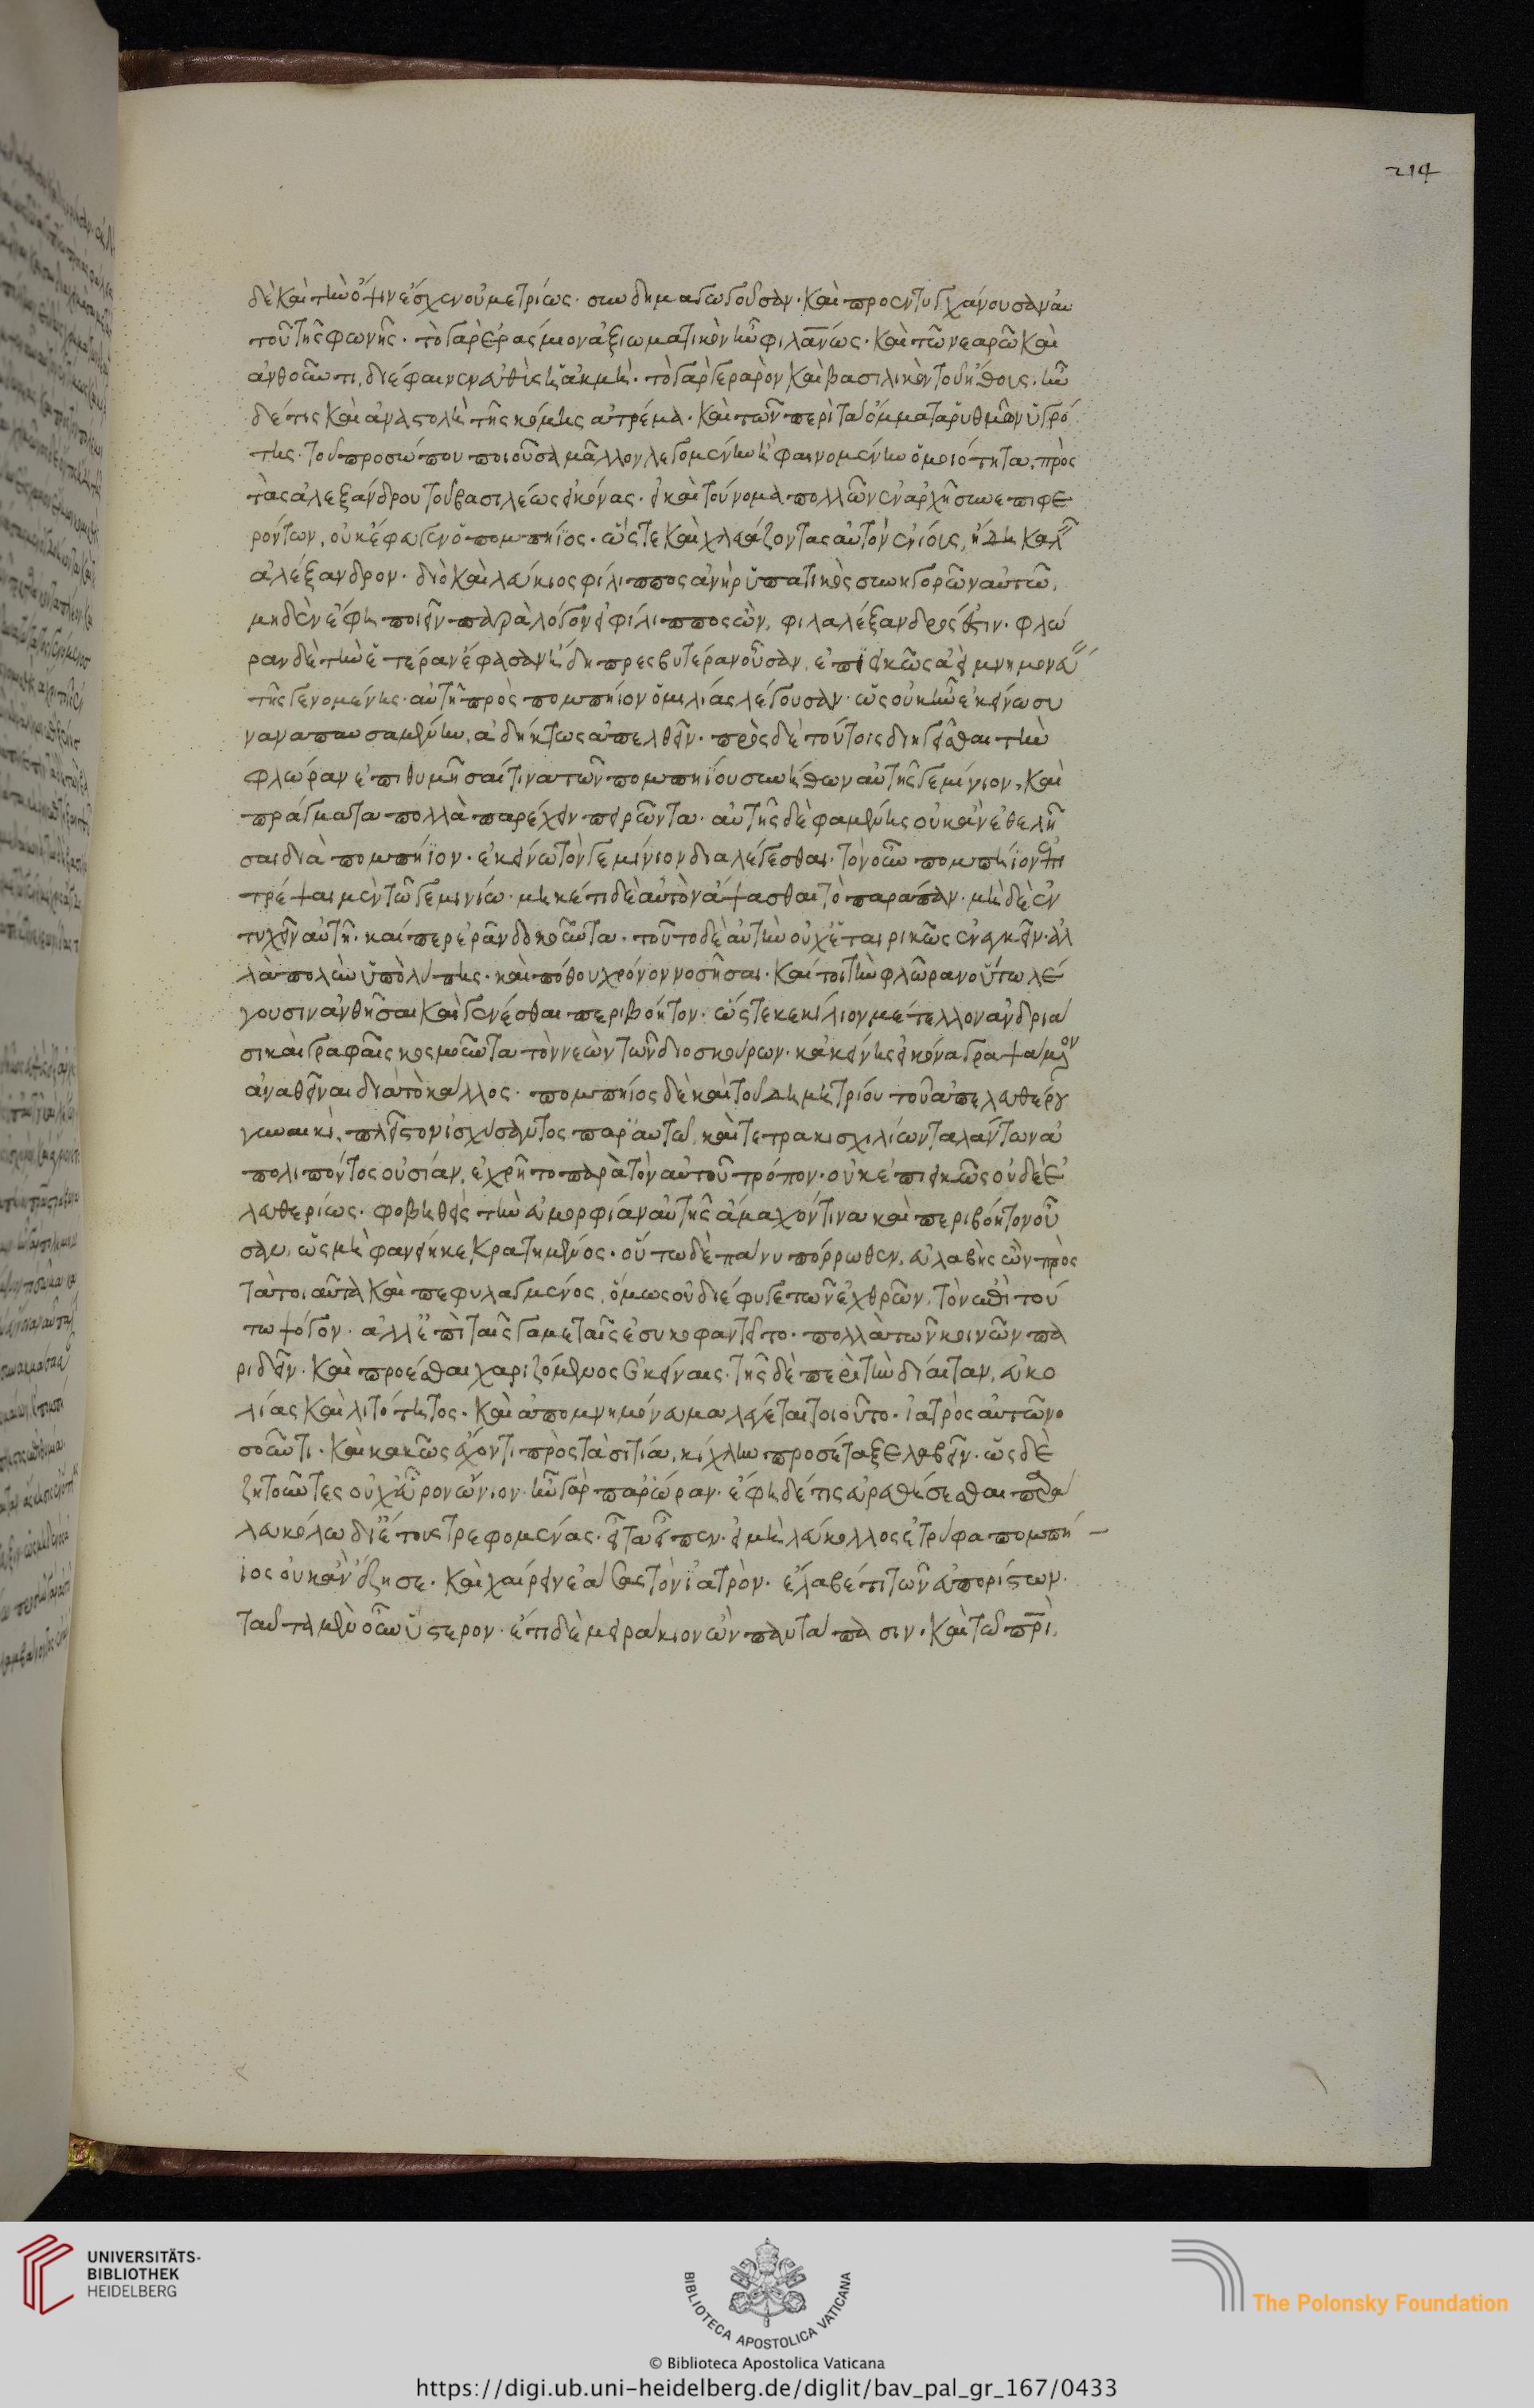 214
δὲ καὶ τὴν ὄψιν ἔσχεν οὐ μετρίως· συνδημαγωγοῦσαν· καὶ προεντυγχάνουσαν αὐ
τοῦ τῆς φωνῆς· τὸ γὰρ ἐράσμιον ἀξιωματικὸν ἦν φιλανως· καὶ τῶ νεαρῶ καὶ
ἀνθοῦντι, διέφαινεν εὐθὺς ἡ ἀκμή· τὸ γὰρ γεραρὸν καὶ βασιλικὸν τοῦ ἤθους. ἦν
δέ τις καὶ ἀναστολὴ τῆς κόμης ἀτρέμα· καὶ τῶν περὶ τὰ ὄμματα ῥυθμῶν ὑγρό
της· τοῦ προσώπου ποιοῦσα μᾶλλον λεγομένην ἢ φαινομένην ὁμοιότητα, πρὸς
τὰς ἀλεξάνδρου τοῦ βασιλέως εἰκόνας· εἰ καὶ τοὔνομα πολλῶν ἐν ἀρχῆ συνεπιφε
ρόντων, οὐκ ἔφευγεν ὁ πομπήϊος· ὥστε καὶ χλευάζοντας αὐτὸν ἐνίους, ἤδη καλεῖν
ἀλέξανδρον· διὸ καὶ λεύκιος φίλιππος ἀνὴρ ὑπατικὸς συνηγορῶν αὐτῶ,
μηδὲν ἔφη ποιεῖν παράλογον εἰ φίλιππος ὢν, φιλαλέξανδρός ἐστιν· φλώ
ραν δὲ τὴν ἑτέραν ἔφασαν ἤδη πρεσβυτέραν οὖσαν, ἐπιεικῶς ἀεὶ μνημονεύ
τῆς γενομένης· αὐτῆ πρὸς πομπήϊον ὁμιλίας λέγουσαν· ὡς οὐκ ἦν ἐκείνω συ
ναναπαυσαμένην, ἀδήκτως ἀπελθεῖν· πρὸς δὲ τούτοις διηγεῖσθαι τὴν
φλώραν ἐπιθυμῆσαί τινα τῶν πομπηΐου συνήθων αὐτῆς γεμίνιον, καὶ
πράγματα πολλὰ παρέχειν πειρῶντα· αὐτῆς δὲ φαμένης οὐκ ἂν ἐθελῆ
σαι διὰ πομπήϊον· ἐκείνω τὸν γεμίνιον διαλέγεσθαι· τὸν οὖν πομπήϊον ἐπι
τρέψαι μὲν τῶ γεμινίω· μηκέτι δὲ αὐτὸν ἅψασθαι τὸ παράπαν· μὴ δὲ ἐν
τυχεῖν αὐτῆ· καίπερ ἐρᾶν δοκοῦντα· τοῦτο δὲ αὐτὴν οὐχ ἑταιρικῶς ἐνεγκεῖν· ἀλ
λὰ πολὺν ὑπὸ λύπης· καὶ πόθου χρόνον νοσῆσαι· καίτοι τὴν φλῶραν οὕτω λέ
γουσιν ἀνθῆσαι καὶ γενέσθαι περιβόητον· ὥστε κεκίλιον μέτελλον ἀνδριᾶ
σι καὶ γραφαῖς κοσμοῦντα τὸν νεὼν τῶν διοσκούρων· κἀκείνης εἰκόνα γραψάμενον
ἀναθεῖναι διὰ τὸ κάλλος· πομπήϊος δὲ καὶ τοῦ δημητρίου τοῦ ἀπελευθέρου
γυναικὶ, πλεῖστον ἰσχύσαντος παρ' αὐτῶ, καὶ τετρακισχιλίων ταλάντων ἀ
πολιπόντος οὐσίαν, ἐχρῆτο παρὰ τὸν αὐτοῦ τρόπον· οὐκ ἐπιεικῶς οὐδὲ ἐ
λευθερίως· φοβηθεὶς τὴν εὐμορφίαν αὐτῆς ἄμαχόν τινα καὶ περιβόητον οὖ
σαν, ὡς μὴ φανείη κεκρατημένος· οὕτω δὲ πάνυ πόρρωθεν, εὐλαβὴς ὢν πρὸς
τὰ τοιαῦτα καὶ πεφυλαγμένος, ὅμως οὐ διέφυγε τῶν ἐχθρῶν, τὸν ἐπὶ τού
τω ψόγον· ἀλλ' ἐπὶ ταῖς γαμεταῖς ἐσυκοφαντεῖτο· πολλὰ τῶν κοινῶν πα
ριδεῖν· καὶ προέσθαι χαριζόμενος ἐκείναις· τῆς δὲ περὶ τὴν δίαιταν, εὐκο
λίας καὶ λιτότητος· καὶ ἀπομνημόνευμα λέγεται τοιοῦτο· ἰατρὸς αὐτῶ νο
σοῦντι· καὶ κακῶς ἔχοντι πρὸς τὰ σιτία, κίχλην προσέταξε λαβεῖν· ὡς δὲ
ζητοῦντες οὐχ εὗρον ὤνιον· ἦν γὰρ παρ' ὥραν· ἔφη δέ τις εὑρεθήσεσθαι παρὰ
λευκόλω δι' ἔτους τρεφομένας· εἶτα εἶπεν· εἰ μὴ λεύκολλος ἐτρύφα πομπή
ϊος οὐκ ἂν ἔζησε· καὶ χαίρειν ἐάσας τὸν ἰατρὸν· ἔλαβέ τι τῶν εὐπορίστων·
ταῦτα μὲν οὖν ὕστερον· ἔτι δὲ μειράκιον ὢν παντάπασιν· καὶ τῶ πρὶ,
UNIVERSITÄTS-
BIBLIOTHEK
HEIDELBERG
BIBLIOTECA APOSTOLICA VATICANA
The Polonsky Foundation
© Biblioteca Apostolica Vaticana
https://digi.ub.uni-heidelberg.de/diglit/bav_pal_gr_167/0433